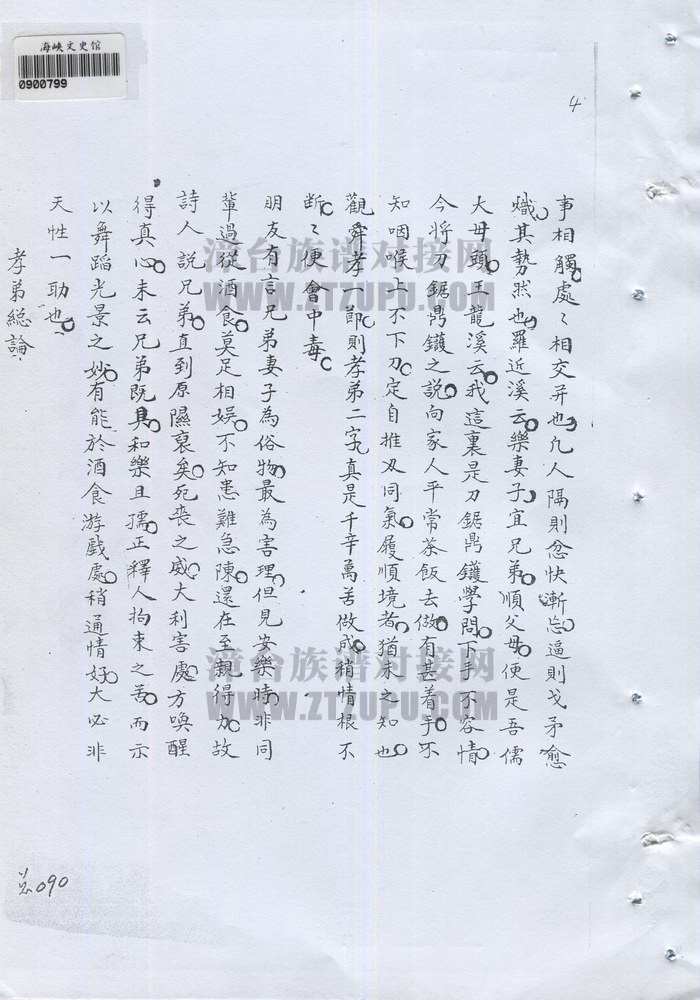 海峡文史馆
0900799
4
事相觸處〻相交幷也。凡人隔則忿快漸忘。逼則戈矛愈
熾。其勢然也。羅近溪云。樂妻子。宜兄弟。順父母。便是吾儒
大毋頭。王龍溪云。我這裏是刀鋸鼎鑊學問。下手不容情。
今將刀鋸鼎鑊之說。向家人平常茶飯去做。有甚着手。不
知咽喉上不下刀。定自推刄同氣。履順境者。猶未之知也。
觀舜孝一節。則孝弟二字。真是千辛萬苦做成。稍情根不
斷。〻便會中毒。
明友有言。兄弟妻子為俗物。最為害理。但見安樂時。非同
輩過從。酒食莫足相娛。不知患難急陳。還在至親得力。故
詩人說兄弟。直到原隰裒矣。死喪之威。大利害處。方喚醒
得真心。末云兄弟既具。和樂且孺。正釋人拘束之苦。而示
以舞蹈光景之妙。有能於酒食游戲處。稍通情好。大必非
天性一助也。
孝弟総論
090
漳台族谱对接网
WWW.ZTZUPU.COM
漳台族谱对接网
WWW.ZTZUPU.COM